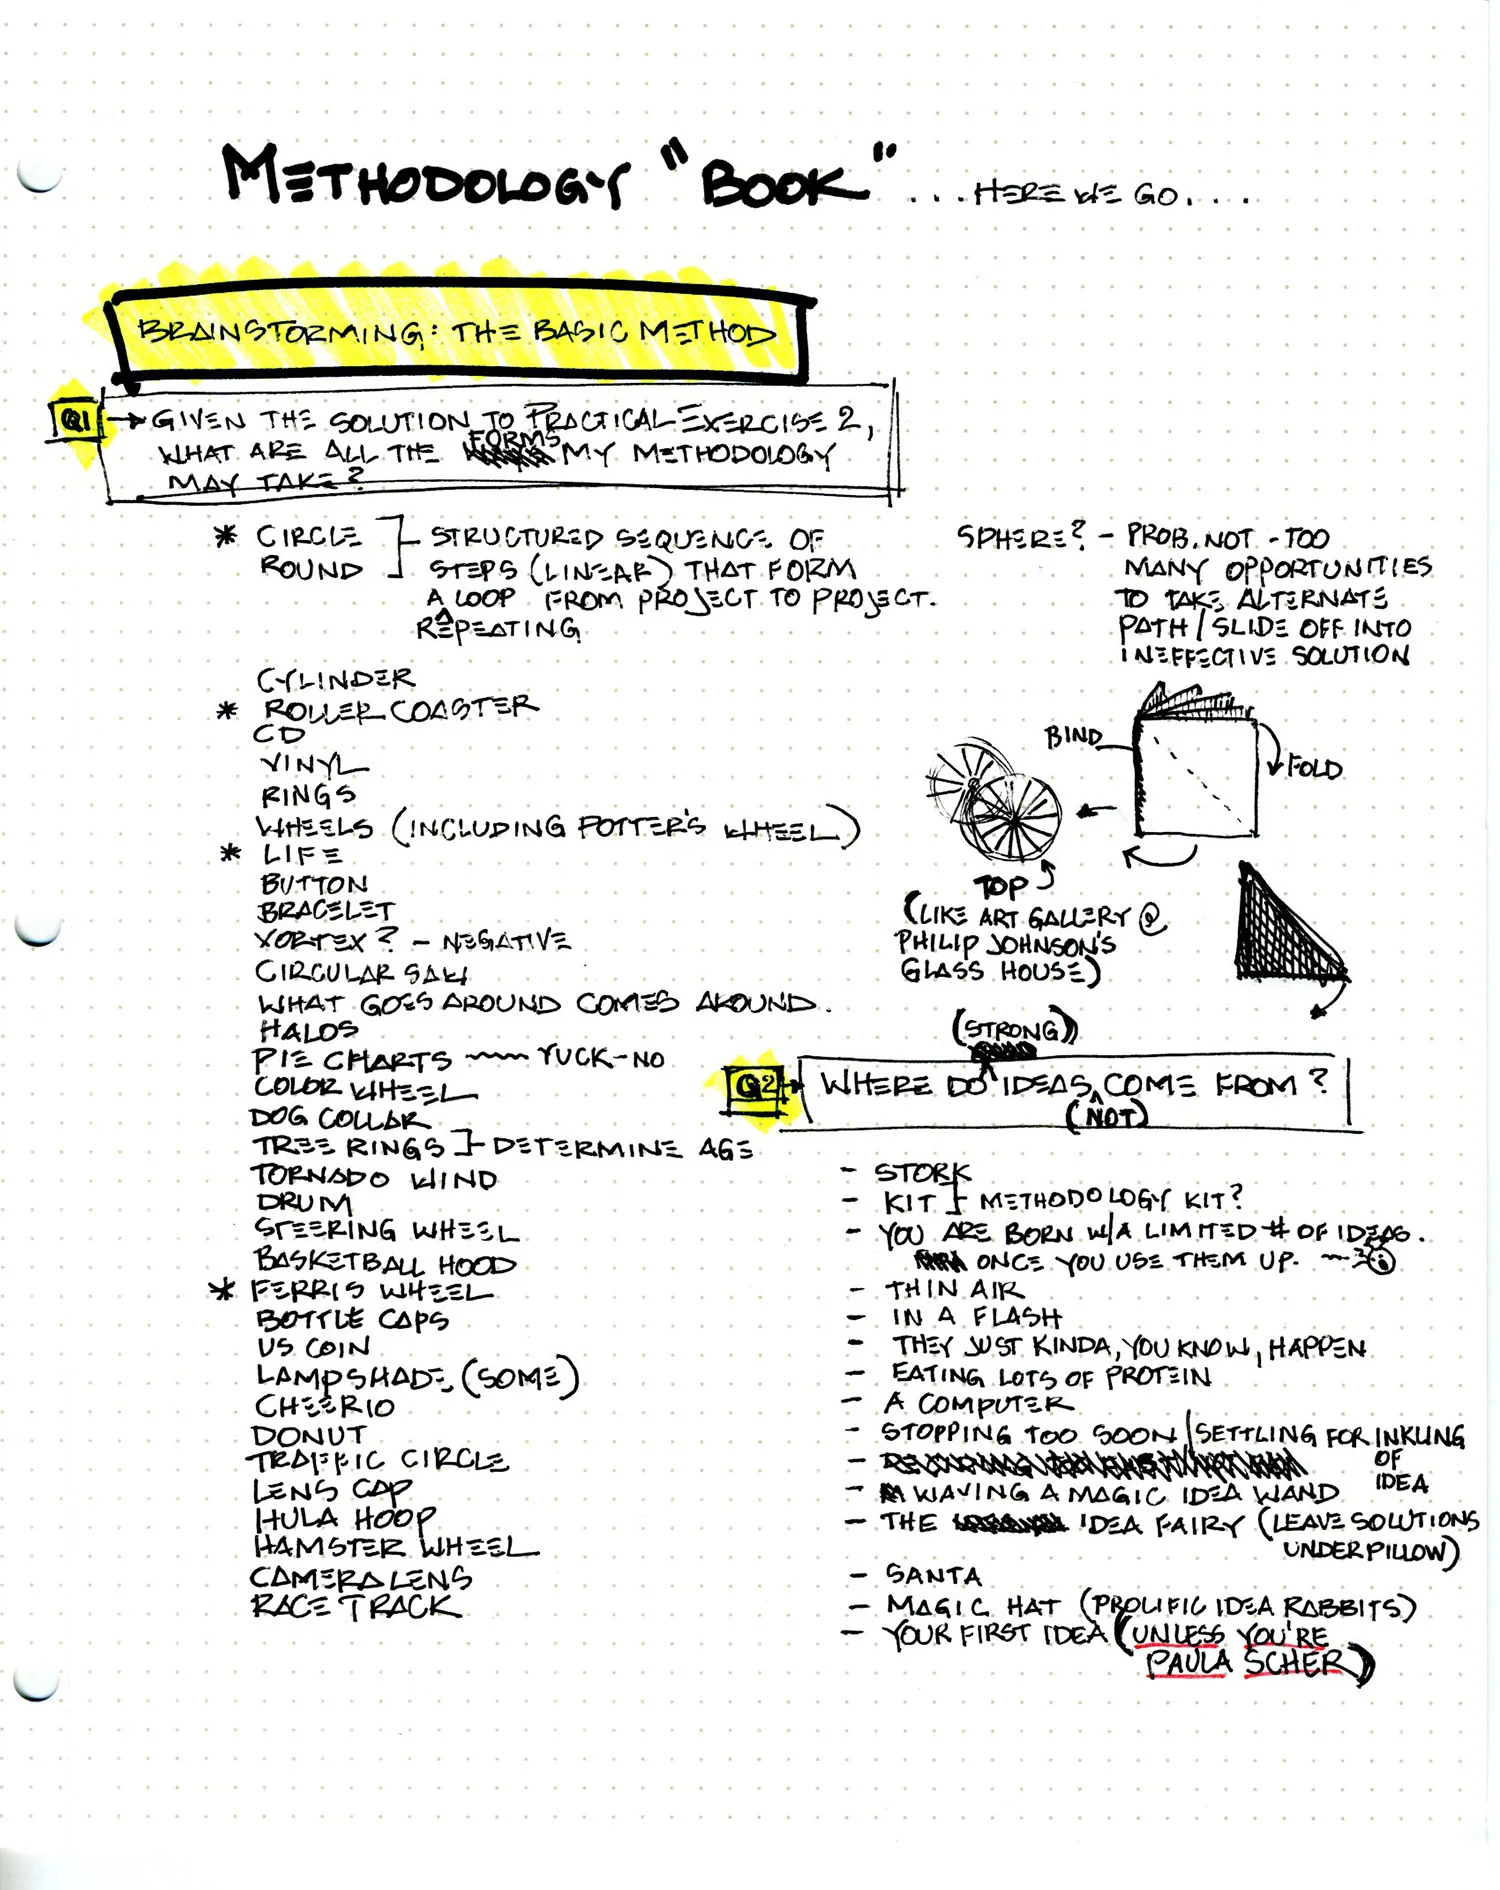 METHODOLOGY "BOOK" ...HERE WE GO....
BRAINSTORMING: THE BASIC METHOD
Q1 → GIVEN THE SOLUTION TO PRACTICAL EXERCISE 2,
WHAT ARE ALL THE FORMS MY METHODOLOGY
MAY TAKE?
* CIRCLE
ROUND
STRUCTURED SEQUENCE OF
STEPS (LINEAR) THAT FORM
A LOOP FROM PROJECT TO PROJECT.
REPEATING
CYLINDER
* ROLLER COASTER
CD
VINYL
RINGS
WHEELS (INCLUDING POTTER'S WHEEL)
* LIFE
BUTTON
BRACELET
VORTEX? - NEGATIVE
CIRCULAR SAW
WHAT GOES AROUND COMES AROUND.
HALOS
PIE CHARTS ~~~ YUCK-NO
COLOR WHEEL
DOG COLLAR
TREE RINGS ]- DETERMINE AGE
TORNADO WIND
DRUM
STEERING WHEEL
BASKETBALL HOOD
* FERRIS WHEEL
BOTTLE CAPS
US COIN
LAMPSHADE (SOME)
CHEERIO
DONUT
TRAFFIC CIRCLE
LENS CAP
HULA HOOP
HAMSTER WHEEL
CAMERA LENS
RACE TRACK
SPHERE? - PROB. NOT - TOO
MANY OPPORTUNITIES
TO TAKE ALTERNATE
PATH / SLIDE OFF INTO
INEFFECTIVE SOLUTION
BIND
FOLD
TOP
(LIKE ART GALLERY @
PHILIP JOHNSON'S
GLASS HOUSE)
(STRONG)
Q2 → WHERE DO IDEAS COME FROM?
(NOT)
- STORK
- KIT }- METHODOLOGY KIT?
- YOU ARE BORN W/A LIMITED # OF IDEAS.
ONCE YOU USE THEM UP.
- THIN AIR
- IN A FLASH
- THEY JUST KINDA, YOU KNOW, HAPPEN
- EATING LOTS OF PROTEIN
- A COMPUTER
- STOPPING TOO SOON / SETTLING FOR INKLING
OF
IDEA
- WAVING A MAGIC IDEA WAND
- THE IDEA FAIRY (LEAVE SOLUTIONS
UNDER PILLOW)
- SANTA
- MAGIC HAT (PROLIFIC IDEA RABBITS)
- YOUR FIRST IDEA (UNLESS YOU'RE
PAULA SCHER)